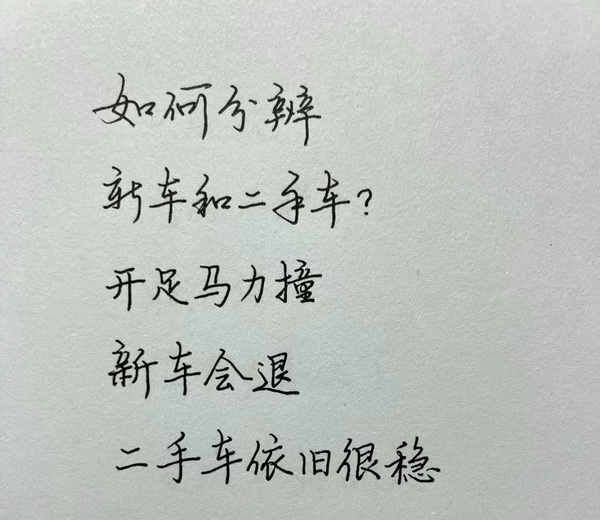 如何分辨
新车和二手车?
开足马力撞
新车会退
二手车依旧很稳